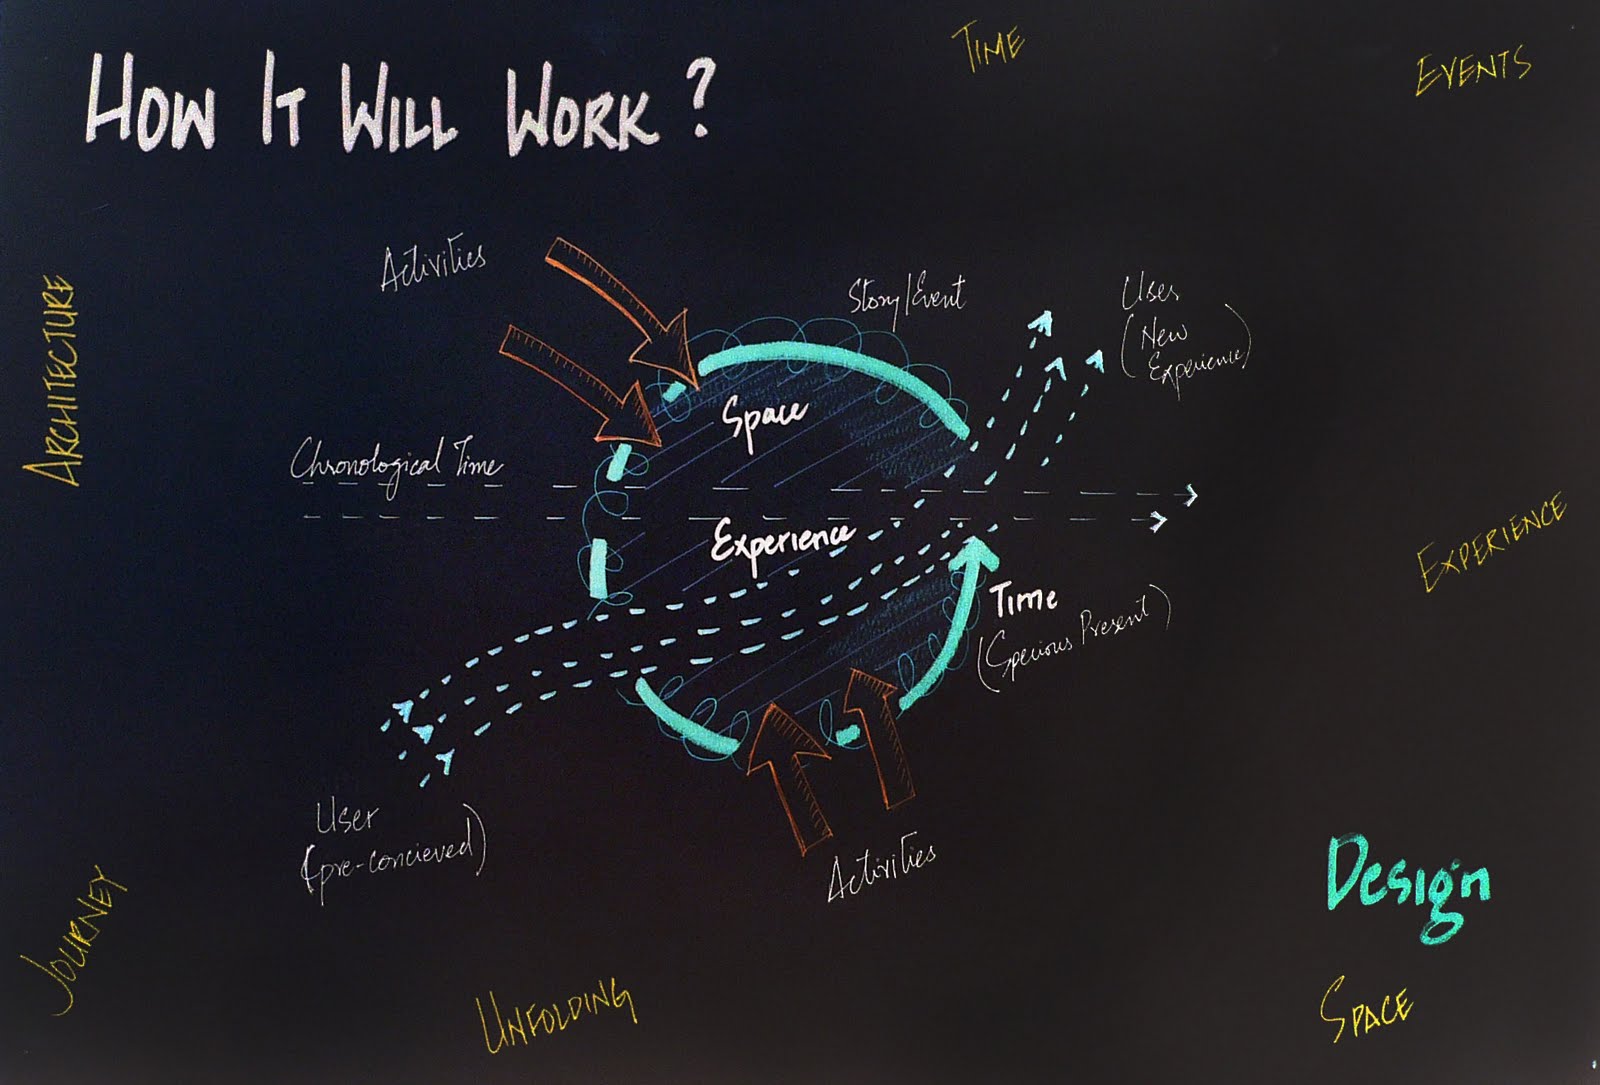 HOW IT WILL WORK?
TIME
EVENTS
Activities
Story/Event
User
(New
Experience)
ARCHITECTURE
Space
Chronological Time
Experience
EXPERIENCE
TIME
(Specious Present)
User
(pre-concieved)
Activities
Design
JOURNEY
UNFOLDING
SPACE